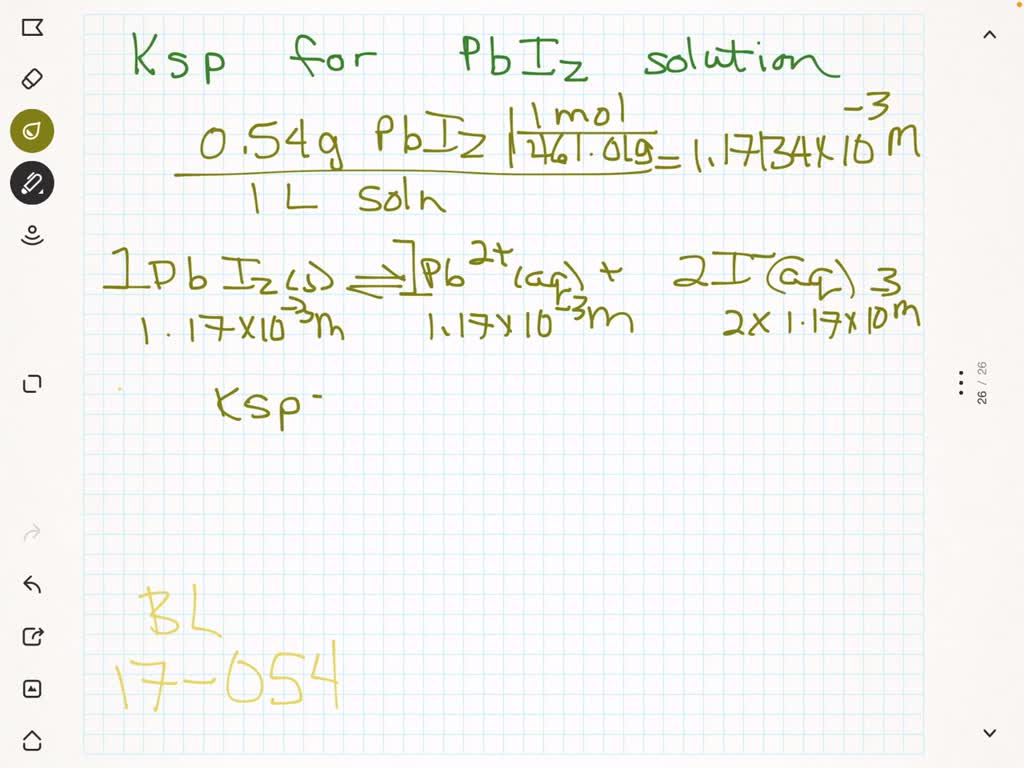 Ksp for PbI2 solution
0.54g PbI2 | 1 mol / 461.01g = 1.17134 x 10^-3 M
1 L soln
1 PbI2(s) ⇌ 1Pb^2+(aq) + 2I^-(aq)
1.17x10^-3 M 1.17x10^-3 M 2 x 1.17x10^-3 M
Ksp -
BL
17-054
26 / 26